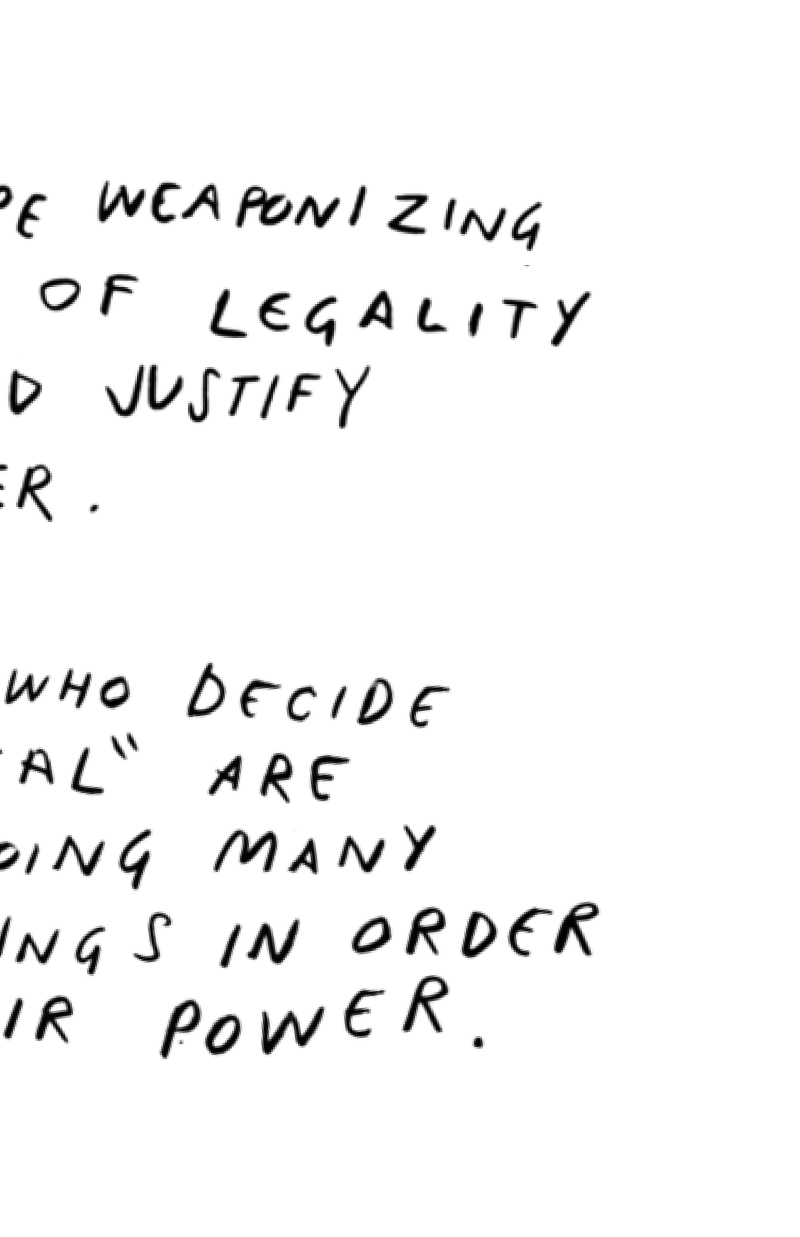 PE WEAPONIZING
OF LEGALITY
D JUSTIFY
ER.
WHO DECIDE
AL" ARE
OING MANY
INGS IN ORDER
IR POWER.